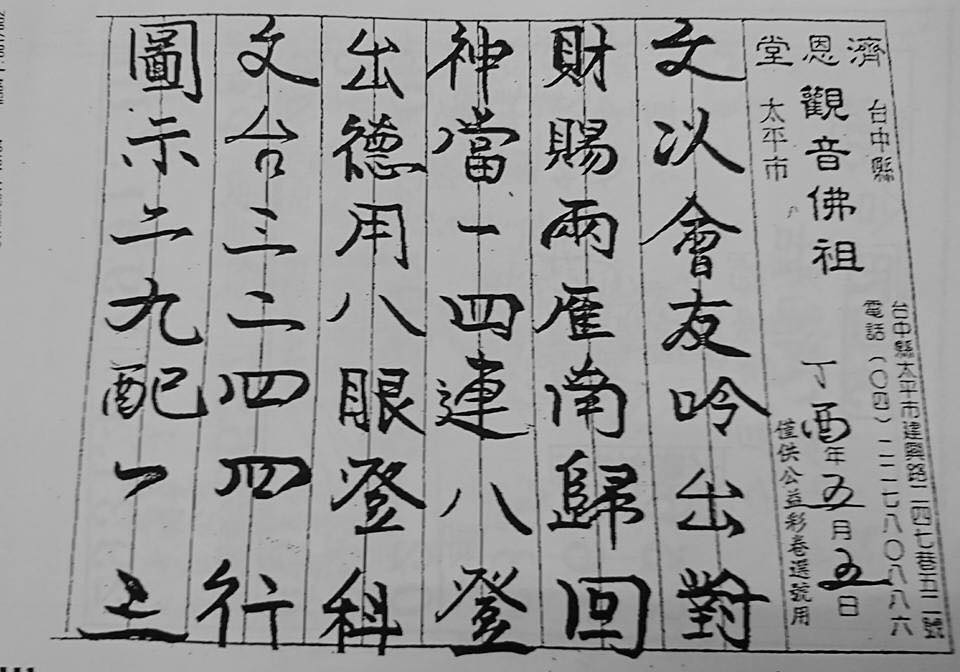 濟恩堂
觀音佛祖
台中縣
太平市
台中縣太平市建興路二四七巷五二號
電話(〇四)二二七八〇八八六
丁酉年五月五日
僅供公益彩卷選號用
文以會友吟出對
財賜兩雁南歸回
神當一四連八登
出德用八眼登科
文台三二四四行
圖示二九配一上